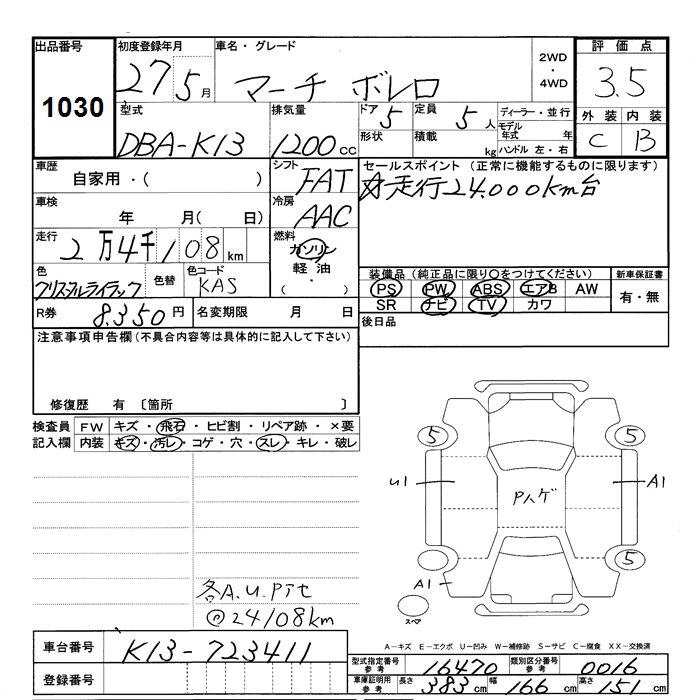 出品番号 初度登録年月 車名・グレード 2WD・4WD 評価点
1030 27 5月 マーチ ボレロ 3.5
型式 排気量 ドア 5 定員 5人 ディーラー・並行 外装 内装
DBA-K13 1200cc 形状 積載 kg モデル年式 年 C B
ハンドル 左・右
車歴 シフト FAT セールスポイント (正常に機能するものに限ります)
自家用・( ) 走行24.000km台
車検 年 月( 日) 冷房 AAC
走行 2万4千108km 燃料 ガソリン
軽油
( ・ )
色 クリスタルライラック 色替 色コード KAS
装備品 (純正品に限り○をつけてください) 新車保証書
PS PW ABS エアB AW 有・無
SR ナビ TV カワ
R券 8.350円 名変期限 月 日
後日品
注意事項申告欄(不具合内容等は具体的に記入して下さい)
修復歴 有 〔箇所 〕
検査員 FW キズ・飛石・ヒビ割・リペア跡・×要
記入欄 内装 キズ・汚レ・コゲ・穴・スレ・キレ・破レ
5 5
U1 Pハゲ A1
5
A1
スペア
各A.U.Pﾅｾ
@24108km
A-キズ E-エクボ U-凹み W-補修跡 S-サビ C-腐食 XX-交換済
車台番号 K13-723411
登録番号
型式指定番号 参考 16470 類別区分番号 参考 0016
車庫証明用 参考 長さ 383cm 幅 166cm 高さ 151cm